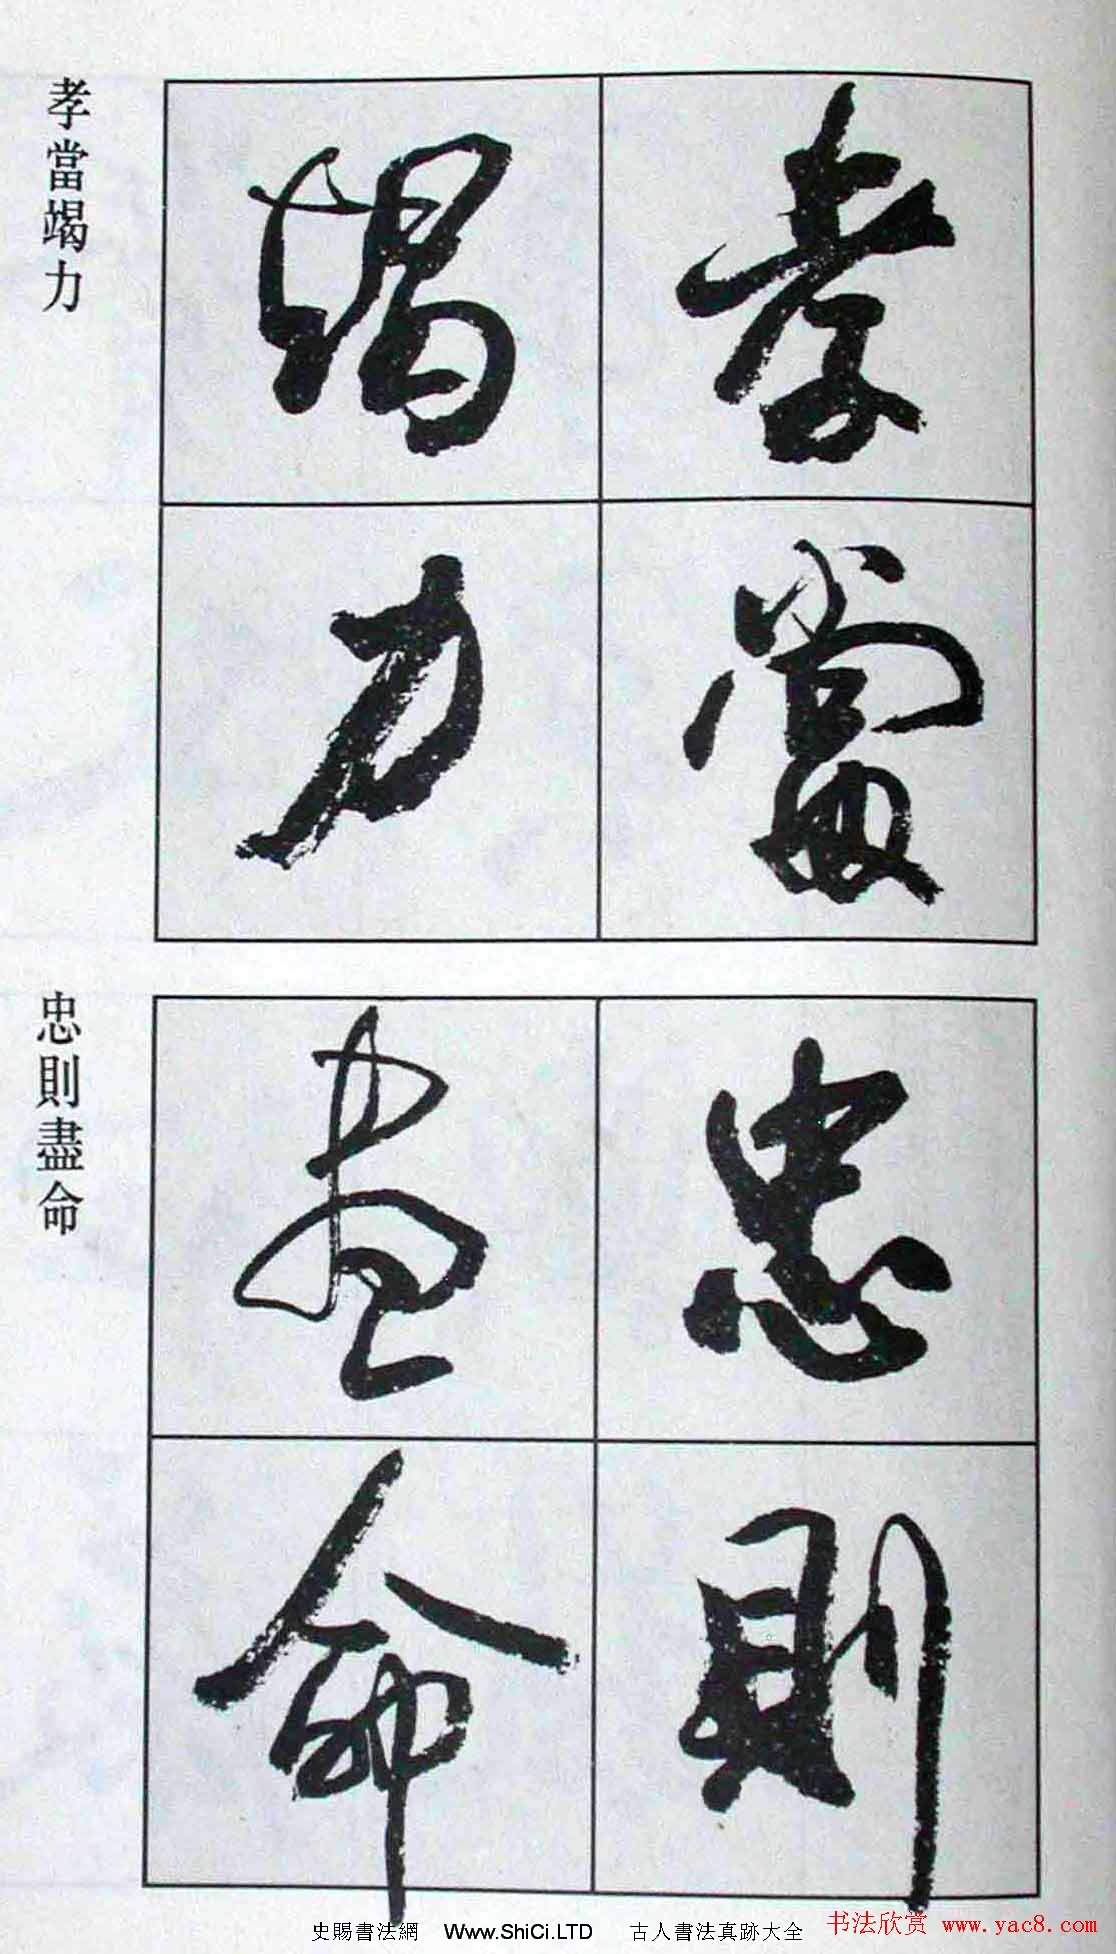 孝當
竭力
孝當竭力
忠則
盡命
忠則盡命
史賜書法網 Www.ShiCi.LTD 古人書法真跡大全
书法欣赏 www.yac8.com